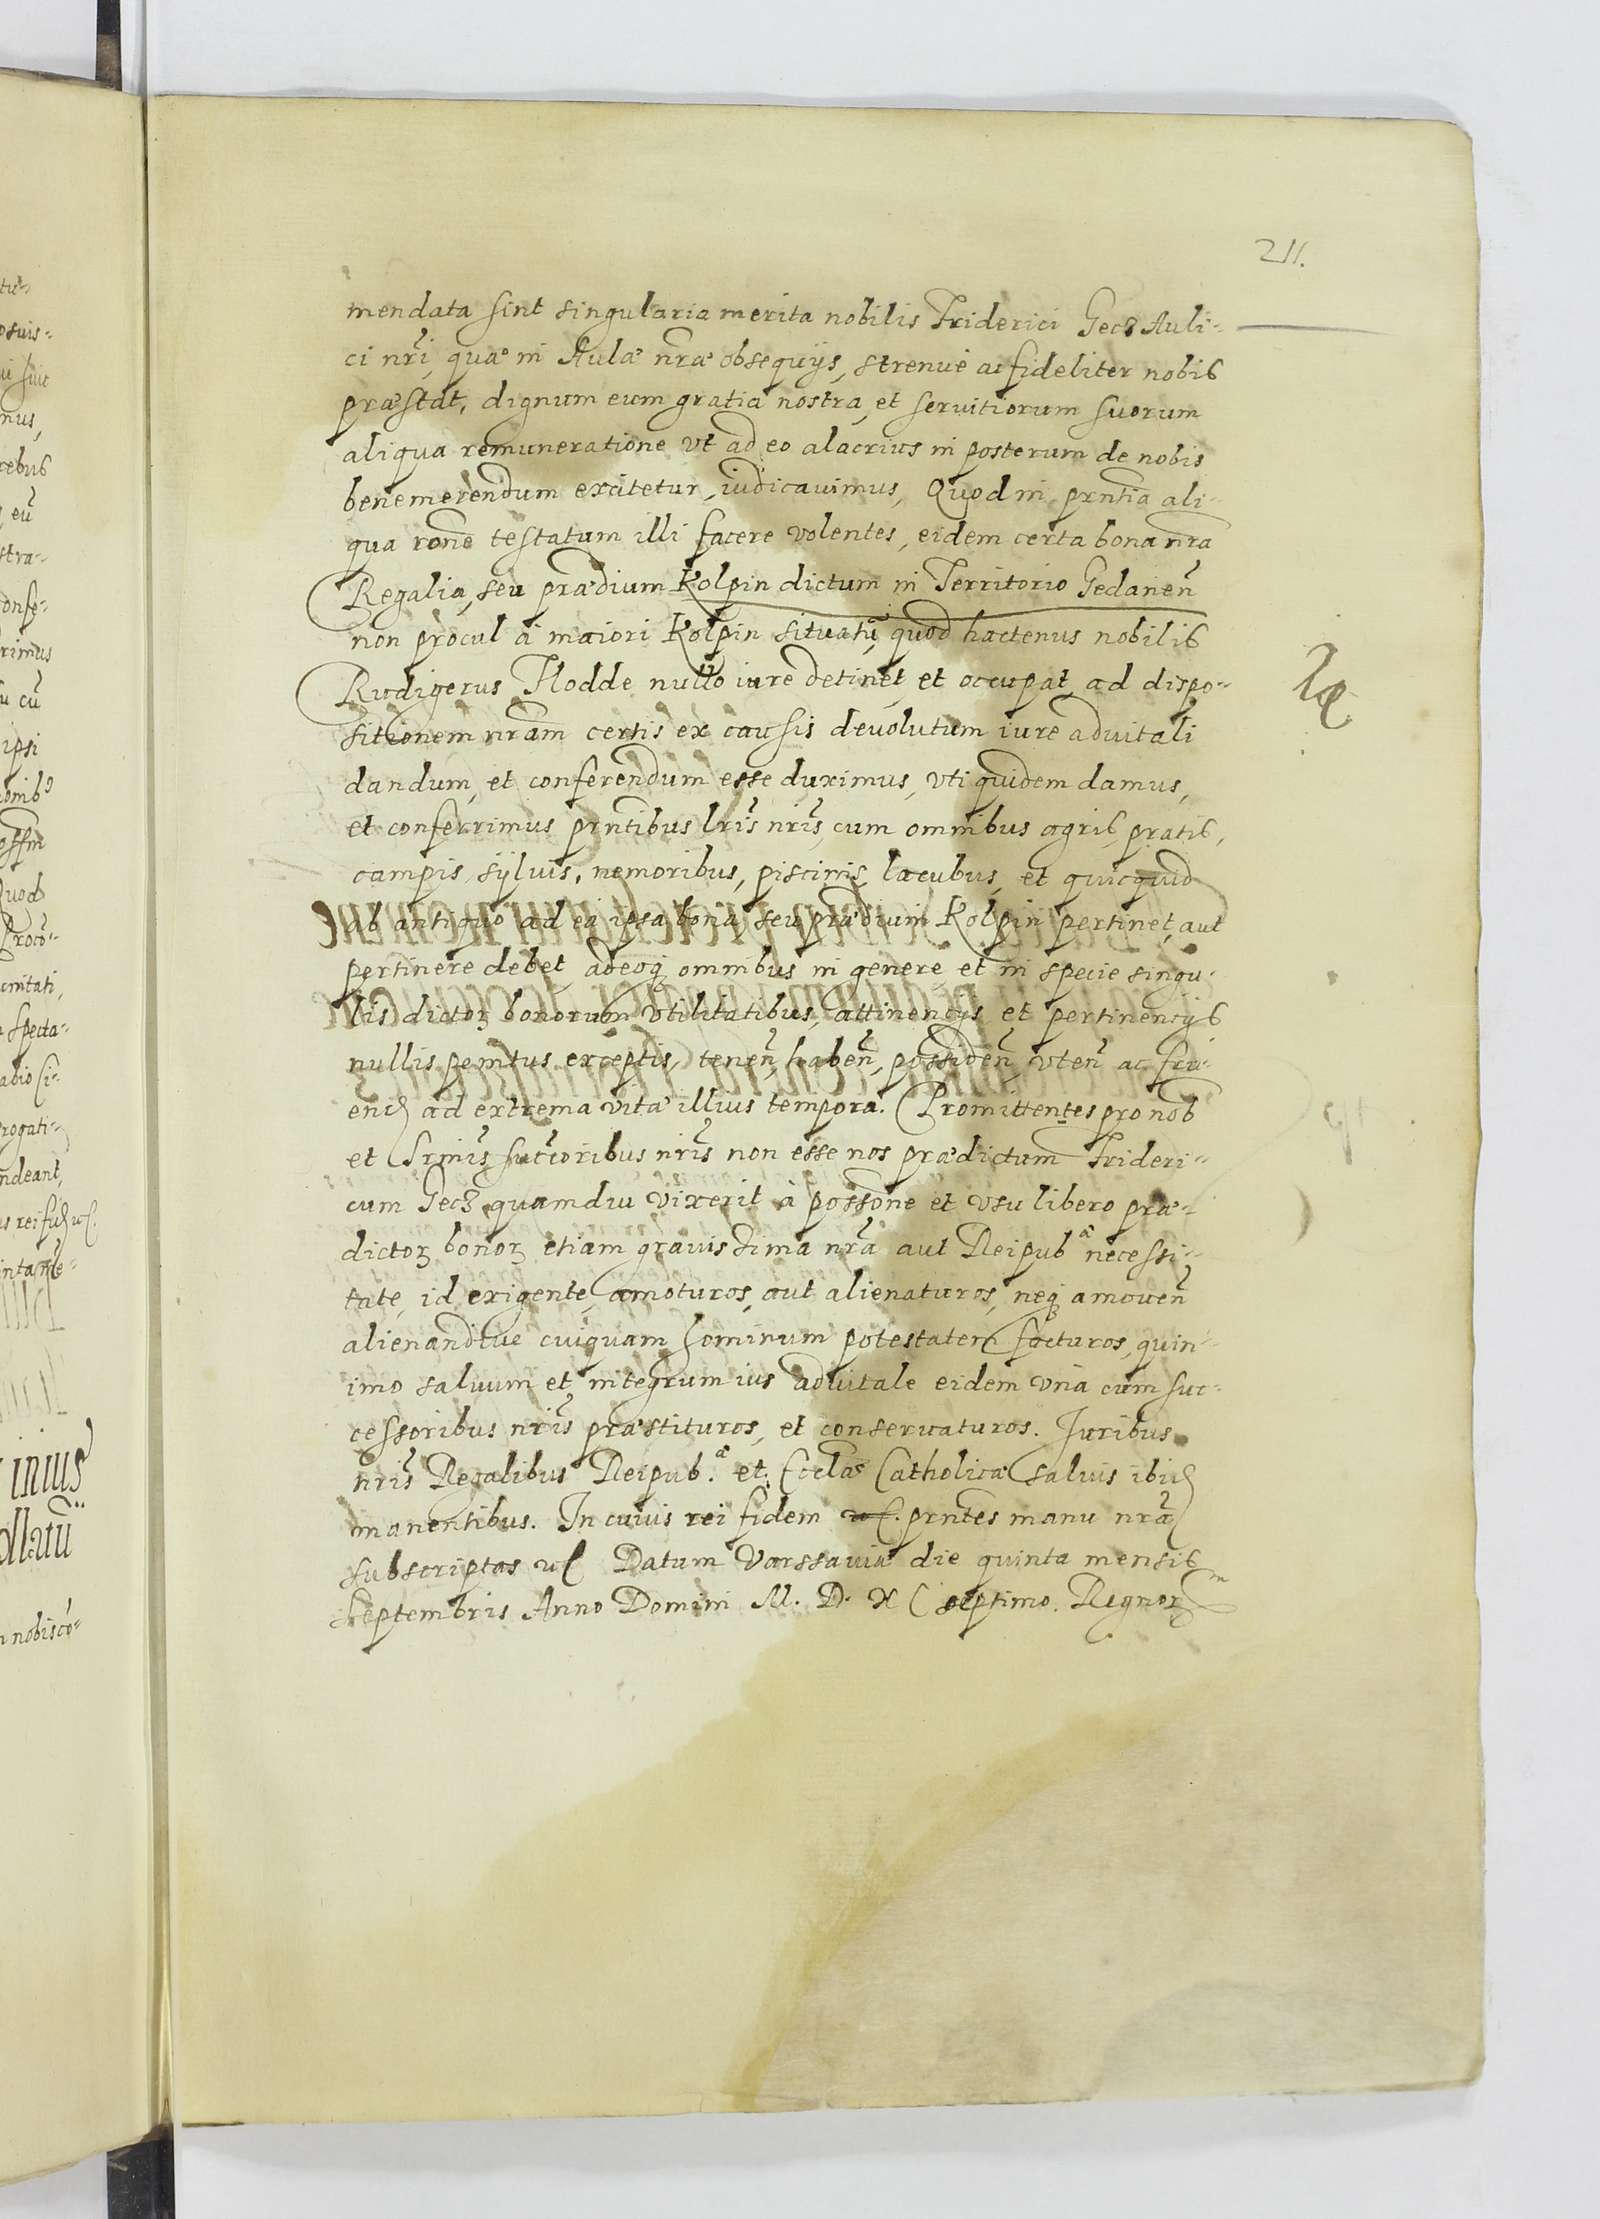 211.
mendata sint singularia merita nobilis Friderici Gecz Auli-
ci nr̃i, quæ in Aulæ nr̃æ obsequijs, strenue ac fideliter nobis
præstat, dignum eum gratia nostra, et servitiorum suorum
aliqua remuneratione vt ad eo alacrius in posterum de nobis
benemerendum excitetur, iudicavimus, Quod in prñtia ali-
qua rõne testatum illi facere volentes, eidem certa bona nr̃a
Regalia, seu prædium Kolpin dictum in Territorio Gedaneñ
non procul à maiori Kolpin situatũ, quod hactenus nobilis
Rudigerus Hodde nullo iure detinet et occupat, ad dispo-
sitionem nr̃am certis ex causis devolutum iure advitali
dandum, et conferendum esse duximus, vti quidem damus,
et conferrimus prñtibus lr̃is nr̃is, cum omnibus agris, pratis,
campis, sylvis, nemoribus, piscinis, lacubus, et quicquid
ab antiquo ad ea ipsa bona, seu prædium Kolpin pertinet, aut
pertinere debet adeoq; omnibus in genere, et in specie singu-
lis dictor̃ bonorum vtilitatibus, attinencijs et pertinencijs
nullis penitus exceptis, teneñ, habeñ, possideñ, vteñ ac fru-
end ad extrema vitæ illius tempora. Promittentes pro nob
et Srm̃is succ̃oribus nr̃is non esse nos prædictum Frideri-
cum Gecz quamdiu vixerit à possõne et vsu libero præ-
dictor̃ bonor̃ etiam gravissima nr̃a aut Reipub.æ necessi-
tate, id exigente, amoturos, aut alienaturos, neq; amoueñ
alienandive cuiquam hominum potestatem facturos, quin-
imo salvum et integrum ius advitale eidem vnà cum suc-
cessoribus nr̃is præstituros, et conservaturos. Iuribus
nr̃is Regalibus Reipub.æ et Eccl̃æ Catholicæ salvis ibid
manentibus. In cuius rei fidem prñtes manu nr̃a
subscriptas Datum Varssaviæ die quinta mensis
Septembris Anno Domini M. D. XC septimo. Regnor̃